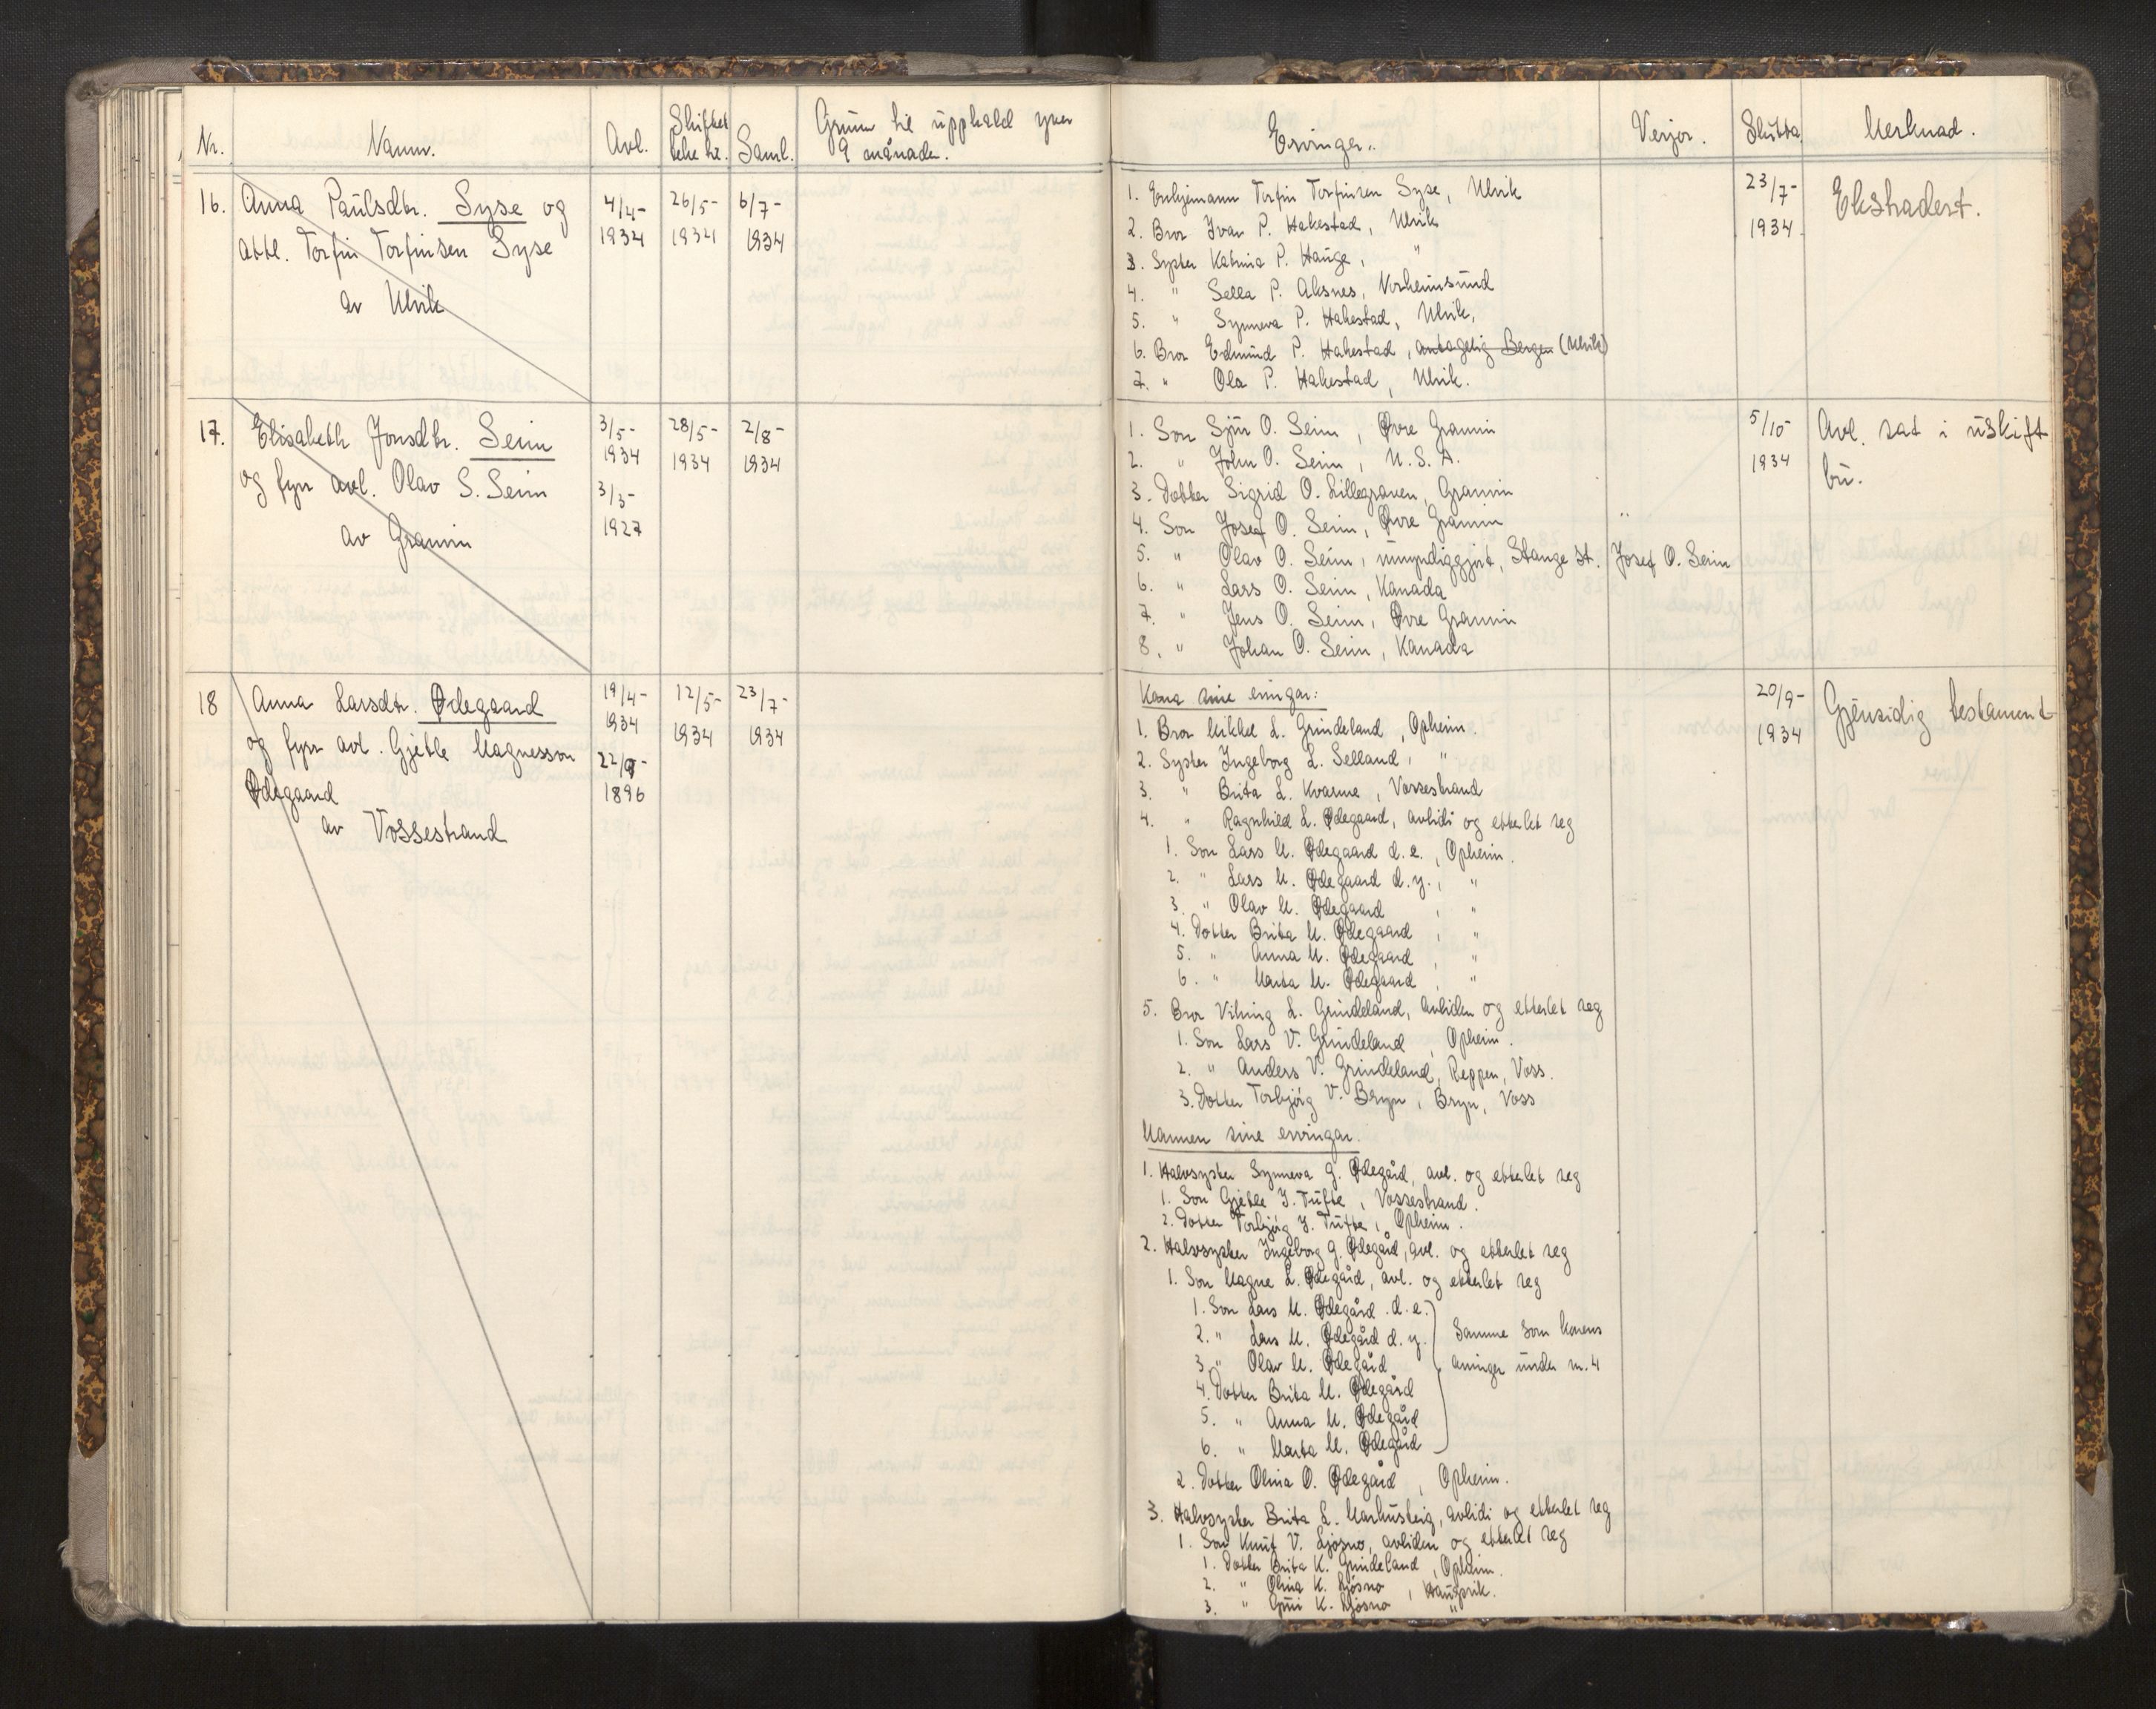 Nr.
Namn.
Avl.
Skiftet
beke hi.
Saml.
Grunn til upphald yver
9 månader.
16. Anna Paulsdtr. Syse og
attl. Torfin Torfinsen Syse
av Ulvik
4/4-
1934
26/5-
1934
6/7-
1934
17. Elisabeth Jonsdtr. Seim
og fyrr avl. Olav S. Seim
av Granvin
3/5-
1934
3/3-
1927
28/5-
1934
2/8-
1934
18 Anna Larsdtr. Ødegaard
og fyrr avl. Gjetle Magnesson
Ødegaard
av Vossestrand
19/4-
1934
22/9-
1896
12/5-
1934
23/7-
1934
Ervingar.
Verjor.
Slutta
Merknad.
1. Enkjemann Torfin Torfinsen Syse, Ulvik
2. Bror Ivar P. Hakestad, Ulvik
3. Syster Katrina P. Hauge, "
4. " Sella P. Aksnes, Norheimsund
5. " Synneva P. Hakestad, Ulvik,
6. Bror Edmund P. Hakestad, antagelig Bergen (Ulvik)
7. " Ola P. Hakestad, Ulvik.
23/7-
1934
Ekstradert.
1. Son Sjur O. Seim, Øvre Granvin
2. " John O. Seim, U.S.A.
3. Dotter Sigrid O. Lillegraven, Granvin
4. Son Josef O. Seim, Øvre Granvin
5. " Olav O. Seim, umyndiggjort, Stange st. Josef O. Seim
6. " Lars O. Seim, Kanada
7. " Jens O. Seim, Øvre Granvin
8. " Johan O. Seim, Kanada
5/10-
1934
Avl. sat i uskift
bu.
Kona sine ervingar:
1. Bror Mikkel L. Grindeland, Opheim.
2. Syster Ingeborg L. Selland, "
3. " Brita L. Kvarme, Vossestrand
4. " Ragnhild L. Ødegaard, avlidi og etterlet seg
1. Son Lars M. Ødegaard d.e., Opheim.
2. " Lars M. Ødegaard d.y., "
3. " Olav M. Ødegaard, "
4. Dotter Brita M. Ødegaard, "
5. " Anna M. Ødegaard, "
6. " Marta M. Ødegaard, "
5. Bror Viking L. Grindeland, avliden og etterlet seg
1. Son Lars V. Grindeland, Opheim.
2. " Anders V. Grindeland, Reppen, Voss.
3. Dotter Torbjørg V. Bryn, Bryn, Voss
Mannen sine ervingar.
1. Halvsyster Synneva G. Ødegård, avl. og etterlet seg
1. Son Gjetle J. Tufte, Vossestrand.
2. Dotter Torbjørg J. Tufte, Opheim.
2. Halvsyster Ingeborg G. Ødegård, avl. og etterlet seg
1. Son Magne L. Ødegård, avl. og etterlet seg
1. Son Lars M. Ødegård d.e.
2. " Lars M. Ødegård d.y.
3. " Olav M. Ødegård
4. Dotter Brita M. Ødegård
5. " Anna M. Ødegård
6. " Marta M. Ødegård
Samme som konens
arvinger under nr. 4
2. Dotter Olina O. Ødegård, Opheim.
3. Halvsyster Brita L. Markusteig, avlidi og etterlet seg
1. Son Knut V. Ljosno, avliden og etterlet seg
1. Dotter Brita K. Grindeland, Opheim.
2. " Olina K. Ljósno, Haugsvik.
3. " Guri K. Ljósno "
20/9-
1934
Gjensidig testament